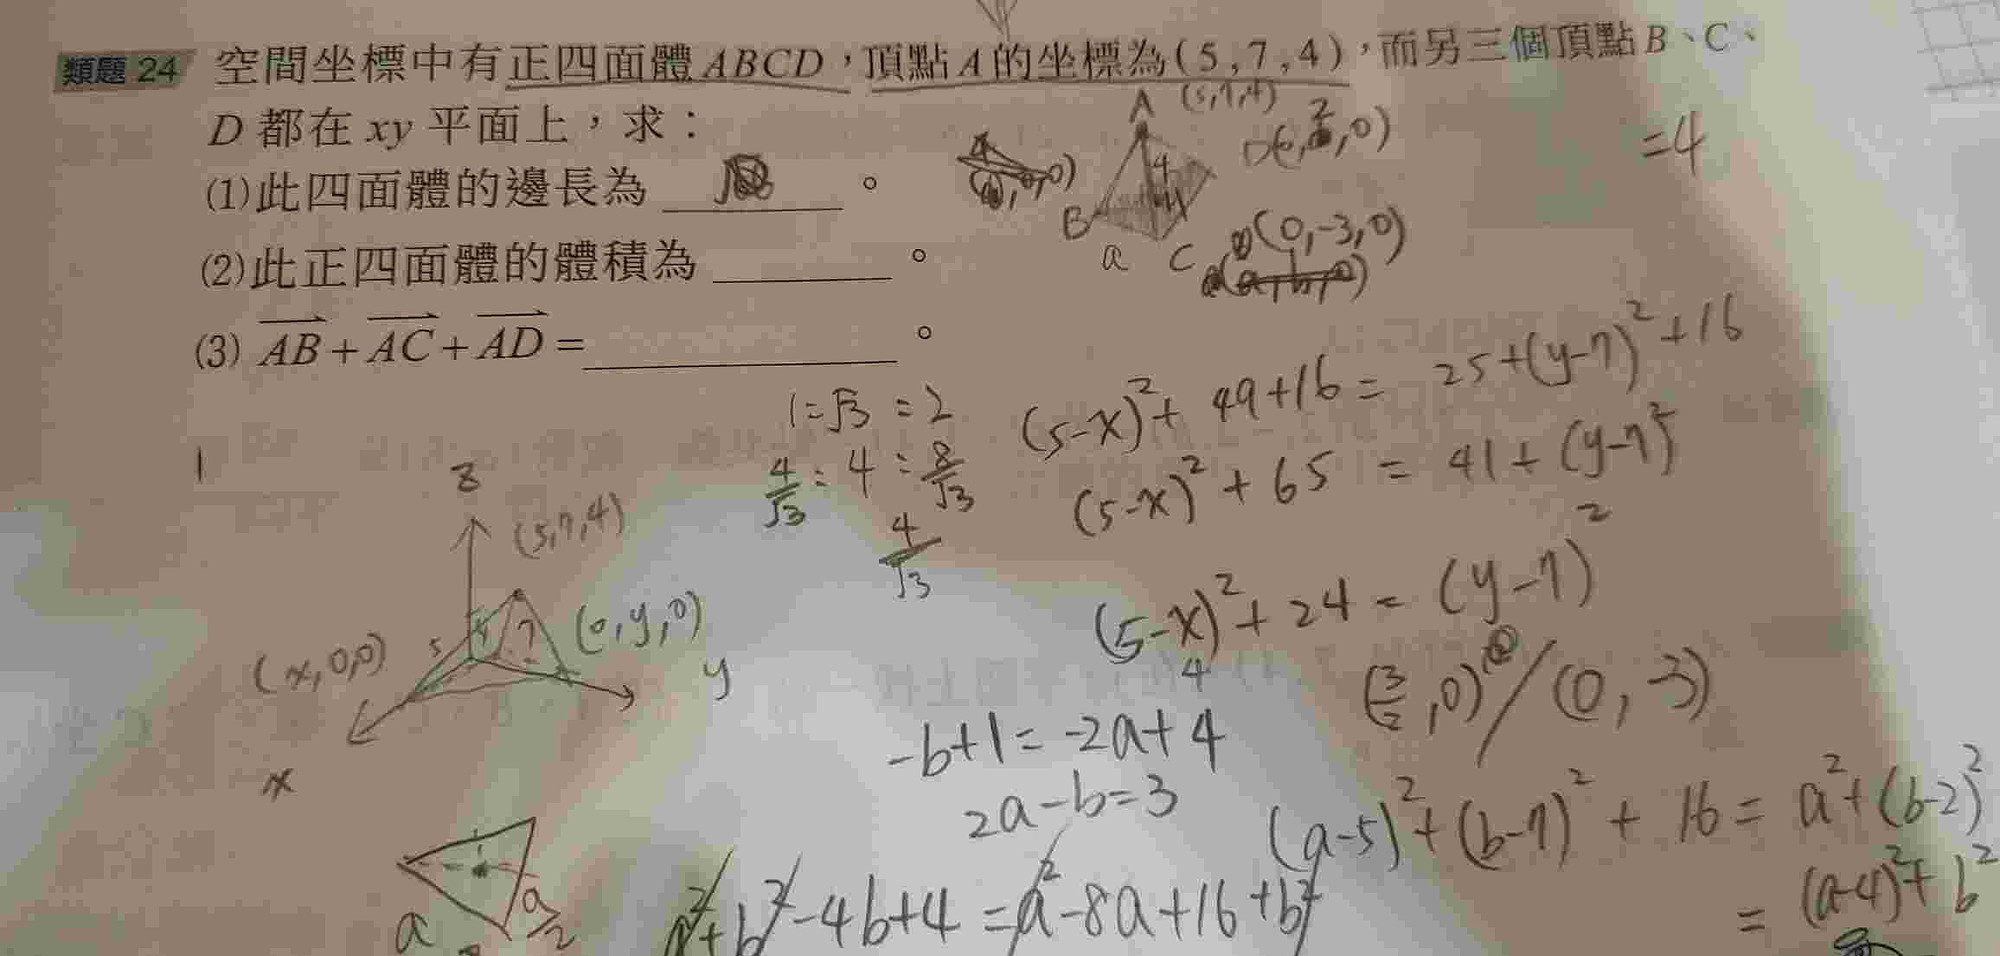 類題 24 空間坐標中有正四面體 ABCD，頂點 A 的坐標為 (5,7,4)，而另三個頂點 B、C、
D 都在 xy 平面上，求：
(1)此四面體的邊長為＿＿＿。
(2)此正四面體的體積為＿＿＿。
(3) AB + AC + AD = ＿＿＿。
A (5,7,4)
=4
4
B
a
C
(0,-3,0)
1=√3:2
4/√3 : 4 : 8/√3
4/√3
(5-x)²+49+16=25+(y-7)²+16
(5-x)²+65=41+(y-7)²
(5-x)²+24=(y-7)²
4
(3/2,0)/(0,-3)
1
z
(5,7,4)
(x,0,0)
5
7
(0,y,0)
y
x
-b+1=-2a+4
2a-b=3
(a-5)²+(b-7)²+16=a²+(b-2)²
=(a-4)²+b²
a²+b²-4b+4=a²-8a+16+b²
a
a/2